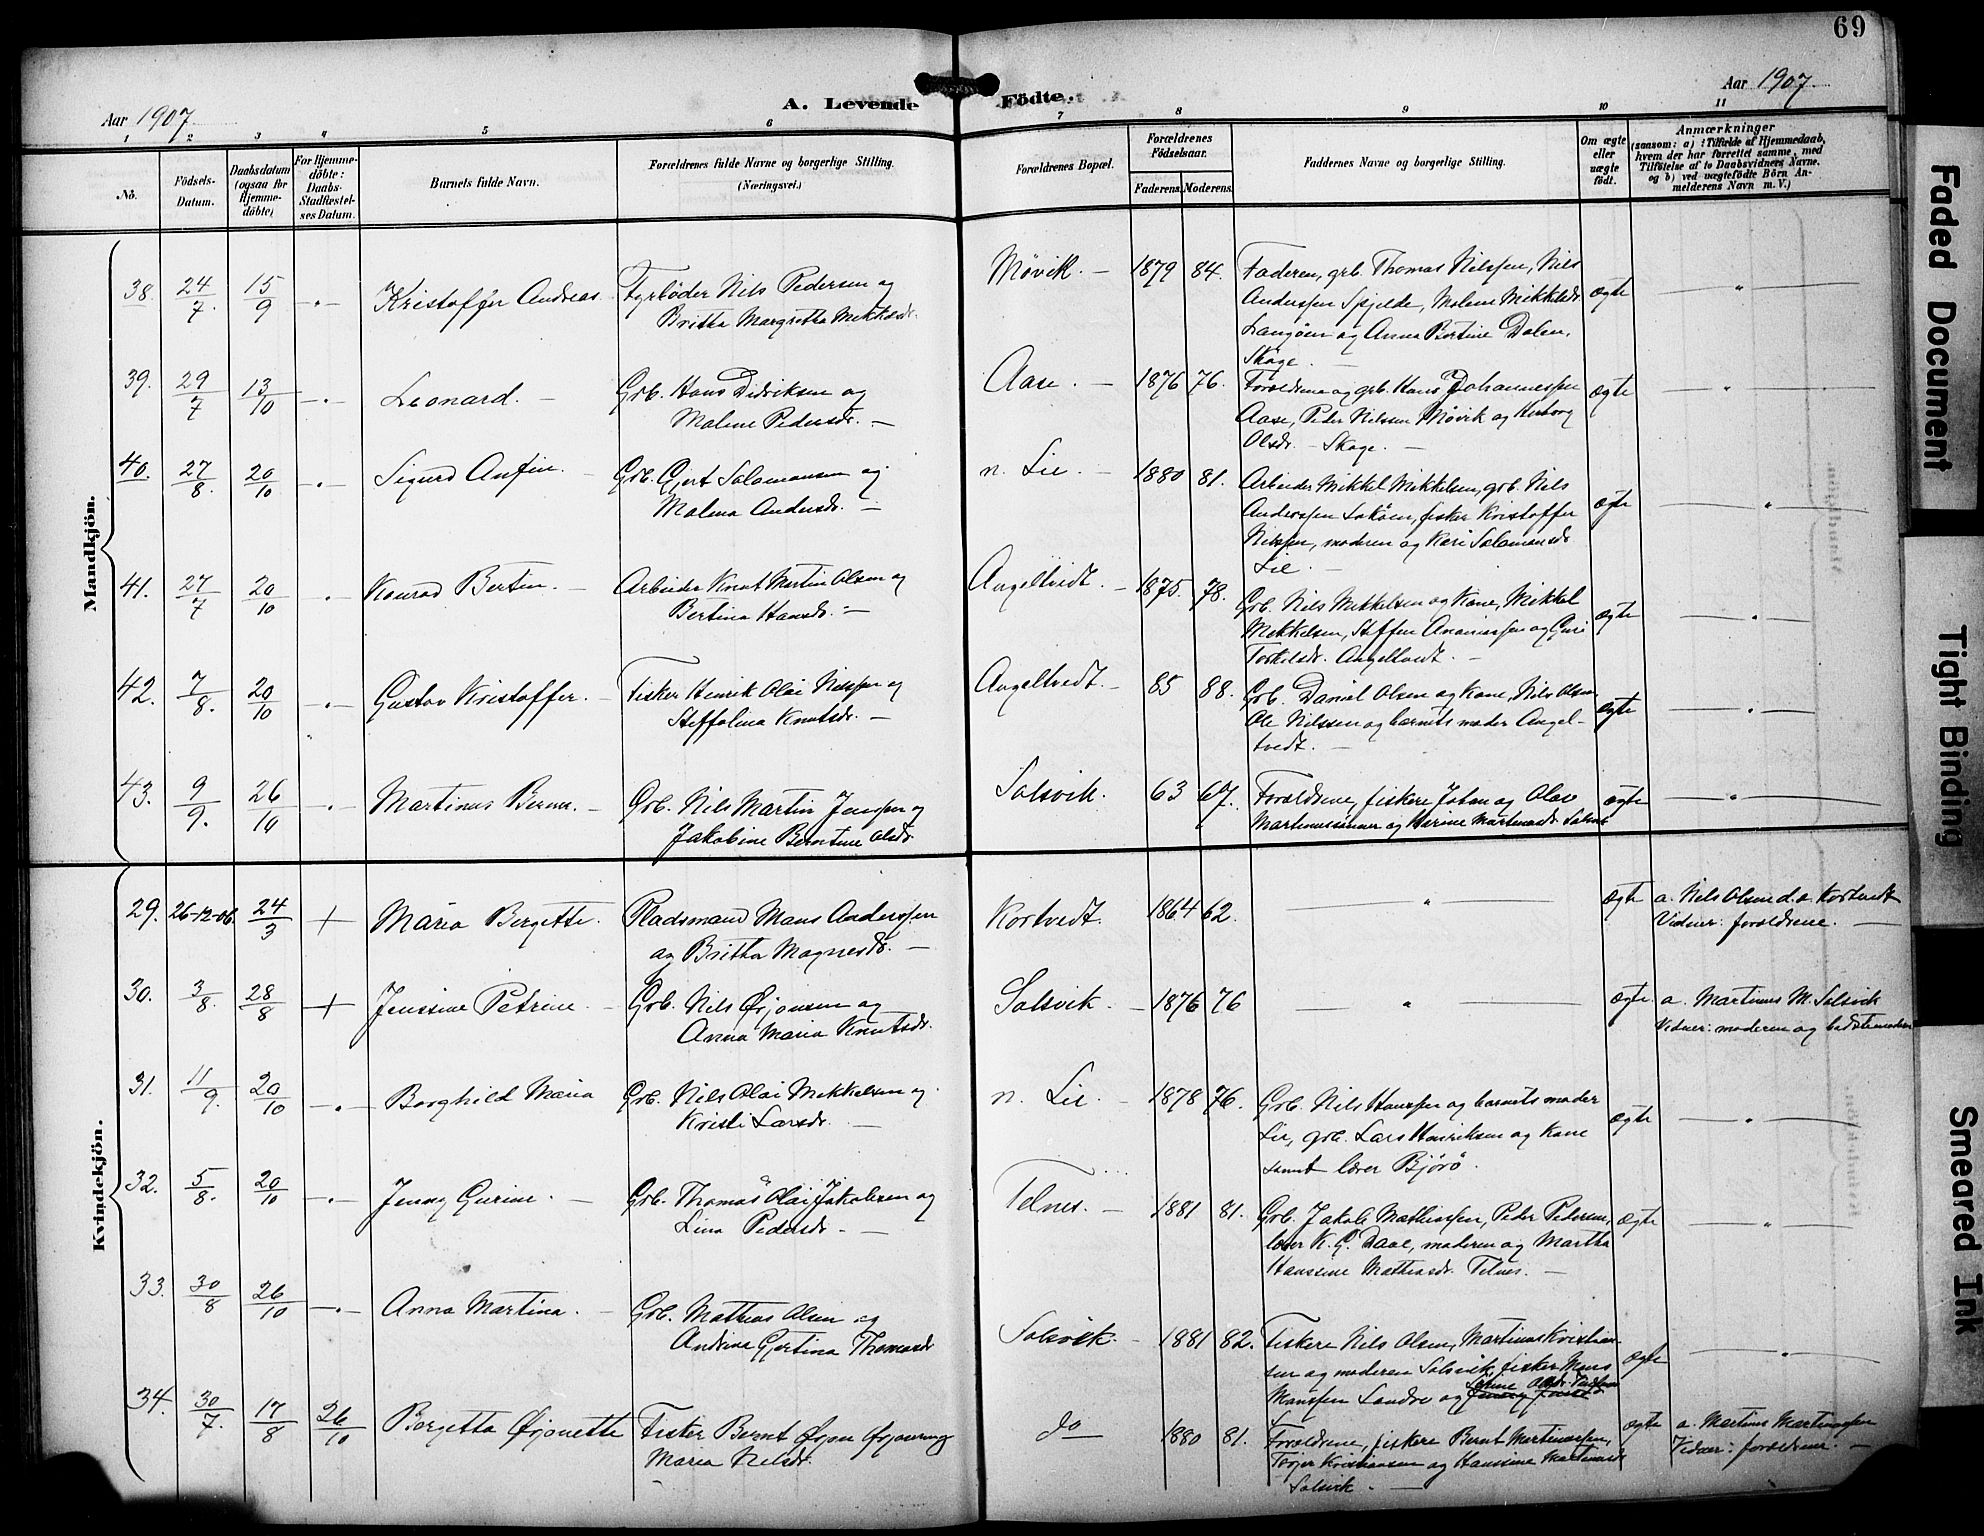 69
Aar 1907
A. Levende
Födte.
Aar 1907
1 2 3 4 5 6 7 8 9 10 11
No.
Födsels-Datum.
Daabsdatum (ogsaa for Hjemme-döbte)
For Hjemme-döbte: Daabs-Stadfæstel-ses Datum.
Barnets fulde Navn.
Forældrenes fulde Navne og borgerlige Stilling.
(Næringsvei.)
Forældrenes Bopæl.
Forældrenes Födselsaar.
Faderens. Moderens.
Faddernes Navne og borgerlige Stilling.
Om ægte eller uægte födt.
Anmærkninger
(saasom: a) i Tilfælde af Hjemmedaab,
hvem der har forrettet samme, med
Tilföielse af to Daabsvidners Navne.
og b) ved uægtefödte Börn An-
melderens Navn m. V.)
Mandkjön.
38. 24/7 15/9 — " — Kristoffer Andreas. Fyrbøder Nils Pedersen og
Britha Margretha Mikkelsdr.
Møvik. — 1879 84. Faderen, grb. Thomas Nilssen, Nils
Anderssen Spjelde, Malene Mikkelsdr
Langøen og Anna Bertine Dalen,
Skage. —
ægte — " —
39. 29/7 13/10 — " — Leonard. — Grb. Hans Didriksen og
Malene Pedersdr. —
Aase. — 1876 76. Forældrene og grb. Hans Johannessen
Aase, Peder Nilssen Møvik og Herborg
Olsdr. — Skage. —
ægte — " —
40. 27/8. 20/10 — " — Sigurd Anfin. — Grb. Gjert Salamonsen og
Malena Andersdr. —
n. Lie. — 1880 81. Arbeider Mikkel Mikkelsen, grb. Nils
Anderssen Lokøen, fisker Kristoffer
Nilssen, moderen og Kari Salamonsdr
Lie. —
ægte — " —
41. 27/7 20/10 — " — Konrad Bertin. — Arbeider Knut Martin Olsen og
Bertina Hansdr. —
Angeltvedt. — 1875. 78. Grb. Nils Mikkelsen og Kone, Mikkel
Mikkelsen, Steffen Ananiassen og Guri
Torkelsdr. Angeltvedt. —
ægte — " —
42. 7/8. 20/10 — " — Gustav Kristoffer. — Fisker Henrik Olai Nilssen og
Steffalina Knutsdr. —
Angeltvedt. — 85 88. Grb. Daniel Olsen og Kone, Nils Olsen
Ole Nilssen og barnets moder Angel-
tvedt. —
ægte — " —
43. 9/9. 26/10 — " — Martinus Bernh. — Grb. Nils Martin Jenssen og
Jakobine Berntine Olsdr
Solsvik. 63 67. Forældrene, fiskere Johan og Olav
Martinussønner og Marine Martinusdr Solsvik
ægte — " —
Kvindekjön.
29. 26-12-06 24/3 + Maria Bergette. Pladsmand Mans Anderssen
og Britha Magnesdr. —
Kortvedt. 1864 62. — " — ægte a. Nils Olsen d.a. Kortvedt
Vidner: forældrene. —
30. 3/8. 28/8 + Jenssine Petrine. — Grb. Nils Ørjonsen og
Anna Maria Knutsdr.
Solsvik. — 1876 76 — " — ægte. a. Martinus M. Solsvik
Vidner: moderen og bedstemoderen
31. 11/9. 20/10 — " — Borghild Maria Grb. Nils Olai Mikkelsen og
Kristi Larsdr. —
n. Lie. — 1878 76. Grb. Nils Hanssen og barnets moder
Lie, grb. Lars Henriksen og Kone
samt lærer Bjørø.
ægte — " —
32. 5/8. 20/10 — " — Jenny Gurine. — Grb. Thomas Olai Jakobsen og
Lina Pedersdr —
Telnes. — 1881 81. Grb. Jakob Mathiassen, Peder Pedersen,
lærer K. G. Daae, moderen og Martha
Hanssine Mathiasdr. Telnes. —
ægte — " —
33. 30/8 26/10 — " — Anna Martina. — Grb. Mathias Olsen og
Andrina Gjertina Thomasdr
Solsvik. — 1881 82. Fiskere Nils Olsen, Martinus Kristian-
sen og moderen Solsvik, fisker Mons
Monssen Landro og
ægte — " —
34. 30/7. 17/8 26/10 Bergetta Ørjonette Fisker Bernt Ørjan Ørjansen og
Maria Nilsdr.
do 1880 81. Forældrene, fiskere Bernt Martinussen,
Torger Kristiansen og Hanssine Martinusdr
Solsvik. —
ægte a. Martinus Martinussen
Vidner: forældrene. —
Faded Document
Tight Binding
Smeared Ink